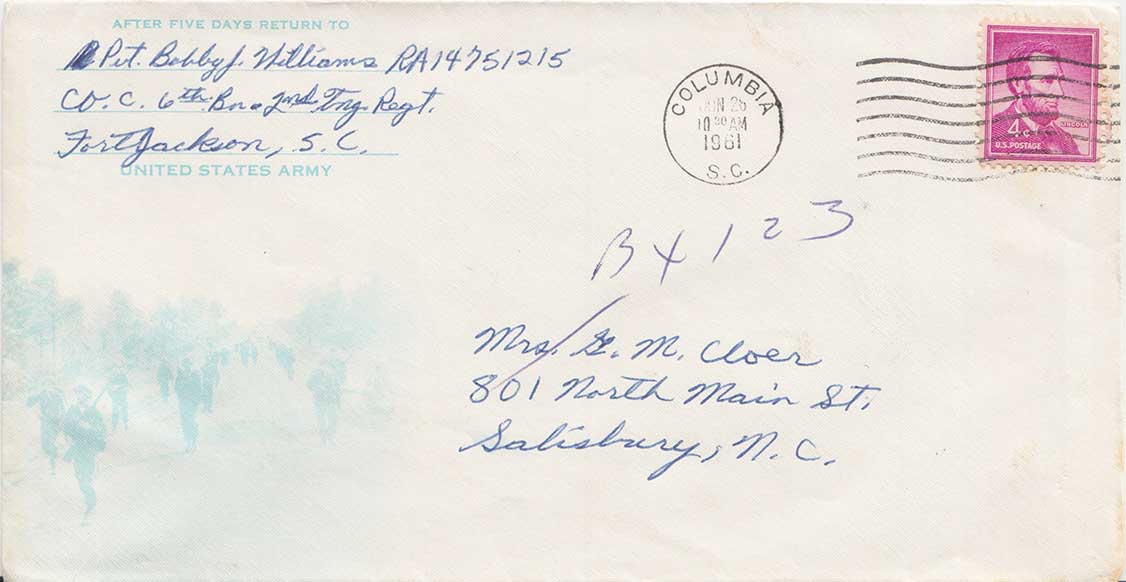 AFTER FIVE DAYS RETURN TO
Pvt. Bobby J. Williams RA14751215
CO. C. 6th Bn. 2nd Tng. Regt.
Fort Jackson, S. C.
UNITED STATES ARMY
COLUMBIA
JUN 26
10 30 AM
1961
S. C.
LINCOLN
4¢
U.S. POSTAGE
Bx 123
Mrs. G. M. Cloer
801 North Main St.
Salisbury, N. C.